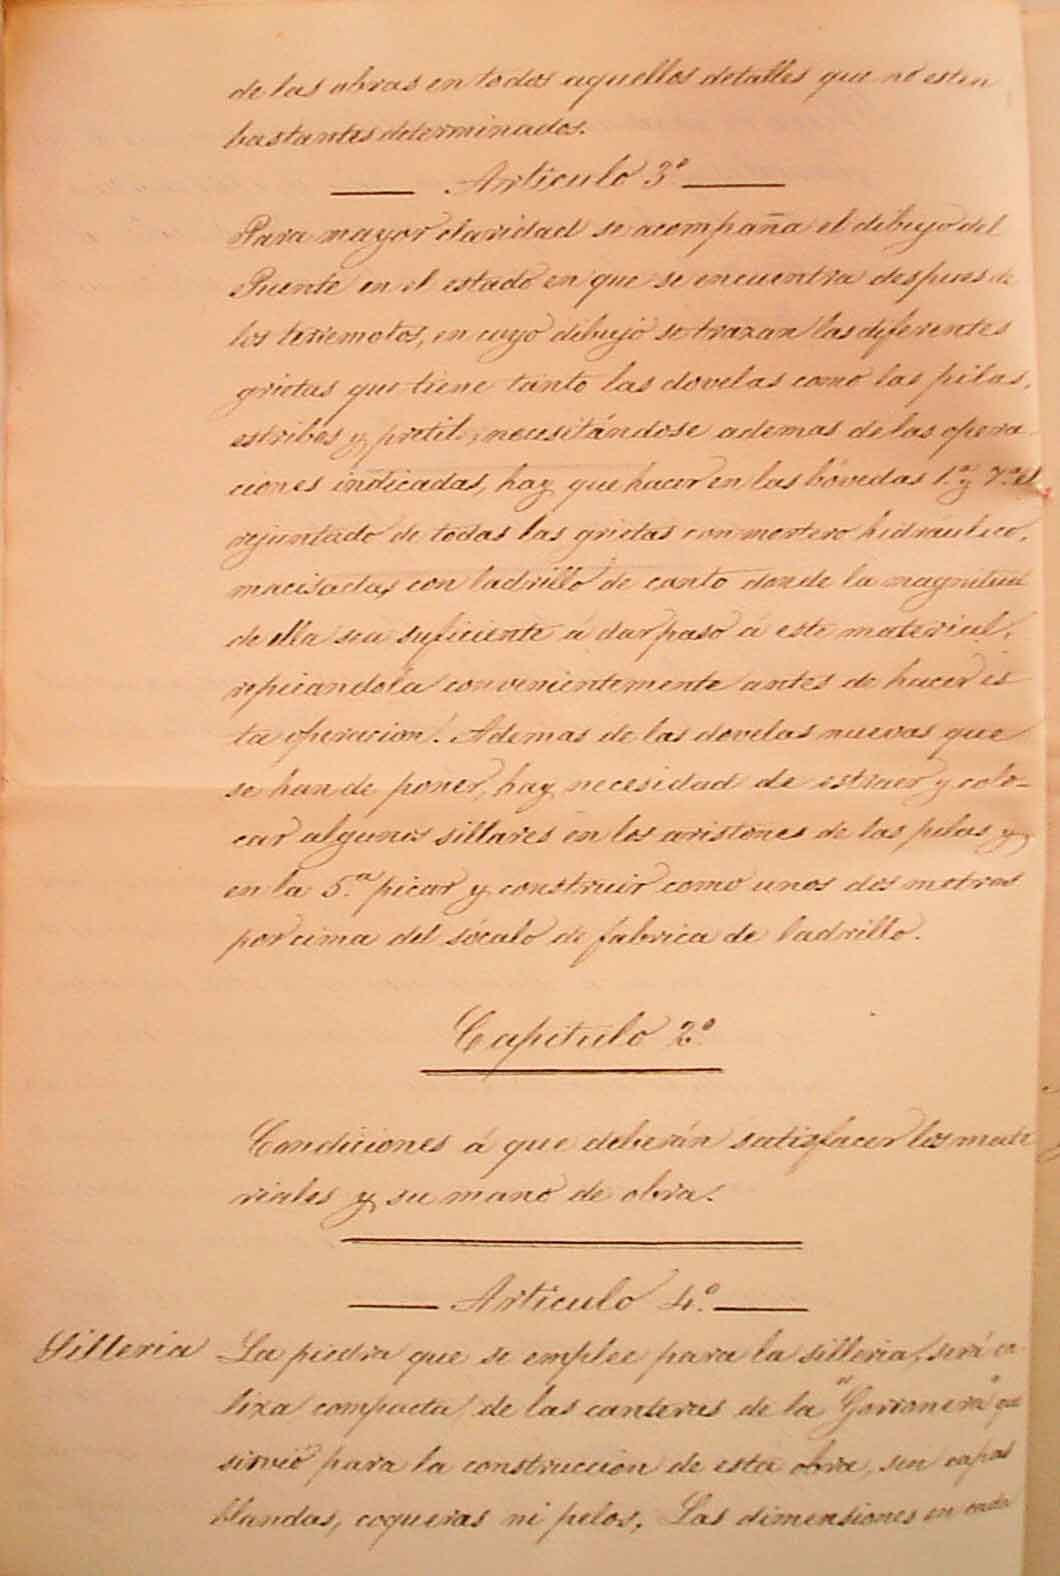 de las obras en todos aquellos detalles que no esten
bastantes determinados.
Articulo 3º
Para mayor claridad se acompaña el dibujo del
Puente en el estado en que se encuentra despues de
los terremotos, en cuyo dibujo se trazan las diferentes
grietas que tiene tanto las dovelas como las pilas,
estribos y pretil, necesitándose ademas de las opera
ciones indicadas, hay que hacer en las bóvedas 1.ª y 7.ª el
rejuntado de todas las grietas con mortero hidraulico,
macisadas con ladrillo de canto donde la magnitud
de ella sea suficiente á dar paso á este material,
repicandola convenientemente antes de hacer es
ta operacion. Ademas de las dovelas nuevas que
se han de poner, hay necesidad de estraer y colo-
car algunos sillares en los aristones de las pilas y
en la 5.ª picar y construir como unos dos metros
por cima del sócalo de fabrica de ladrillo.
Capitulo 2º
Condiciones á que deberán satisfacer los mate
riales y su mano de obra.
Articulo 4.º
Silleria La piedra que se emplee para la silleria, será ca
liza compacta, de las canteras de la "Gorronera" que
sirvió para la construccion de esta obra, sin capas
blandas, coqueras ni pelos, Las dimensiones en cada